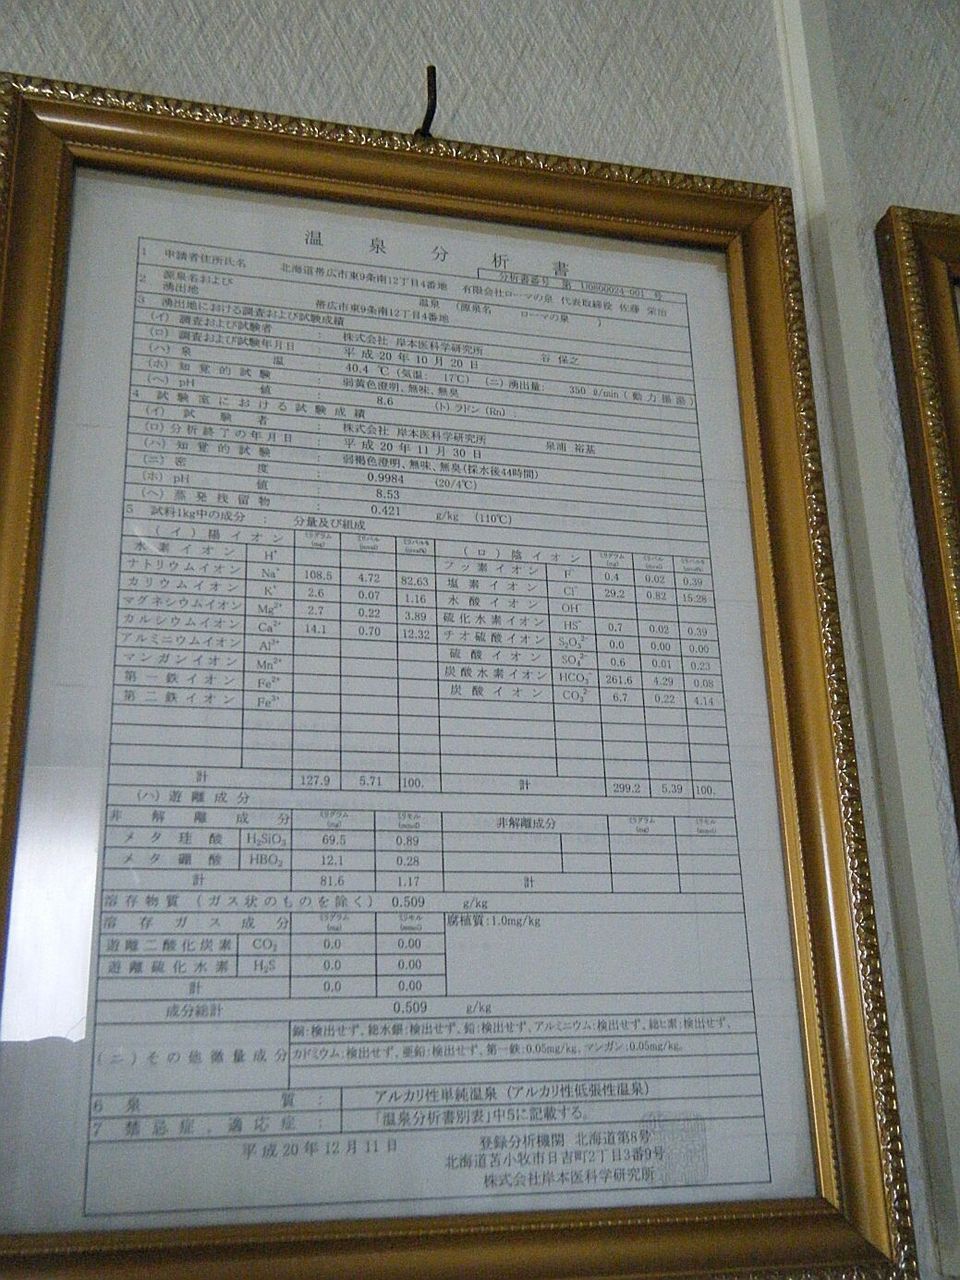 温泉分析書
分析書番号 第 H0800024-001 号
1 申請者住所氏名 北海道帯広市東9条南12丁目4番地 有限会社ローマの泉 代表取締役 佐藤 栄治
2 源泉名および湧出地 温泉 (源泉名 ローマの泉 )
帯広市東9条南12丁目4番地
3 湧出地における調査および試験成績
(イ) 調査および試験者 : 株式会社 岸本医科学研究所 谷 保之
(ロ) 調査および試験年月日 : 平成20年10月20日
(ハ) 泉温 : 40.4 ℃ (気温: 17℃) (ニ) 湧出量: 350 ℓ/min (動力揚湯)
(ホ) 知覚的試験 : 弱黄色澄明、無味、無臭
(ヘ) pH値 : 8.6 (ト) ラドン (Rn) :
4 試験室における試験成績
(イ) 試験者 : 株式会社 岸本医科学研究所 泉浦 裕基
(ロ) 分析終了の年月日 : 平成20年11月30日
(ハ) 知覚的試験 : 弱褐色澄明、無味、無臭(採水後44時間)
(ニ) 密度 : 0.9984 (20/4℃)
(ホ) pH値 : 8.53
(ヘ) 蒸発残留物 : 0.421 g/kg (110℃)
5 試料1kg中の成分 : 分量及び組成
(イ) 陽イオン ミリグラム(mg) ミリバル(mval) ミリバル%(mval%) (ロ) 陰イオン ミリグラム(mg) ミリバル(mval) ミリバル%(mval%)
水素イオン H⁺ フッ素イオン F⁻ 0.4 0.02 0.39
ナトリウムイオン Na⁺ 108.5 4.72 82.63 塩素イオン Cl⁻ 29.2 0.82 15.28
カリウムイオン K⁺ 2.6 0.07 1.16 水酸イオン OH⁻
マグネシウムイオン Mg²⁺ 2.7 0.22 3.89 硫化水素イオン HS⁻ 0.7 0.02 0.39
カルシウムイオン Ca²⁺ 14.1 0.70 12.32 チオ硫酸イオン S₂O₃²⁻ 0.0 0.00 0.00
アルミニウムイオン Al³⁺ 硫酸イオン SO₄²⁻ 0.6 0.01 0.23
マンガンイオン Mn²⁺ 炭酸水素イオン HCO₃⁻ 261.6 4.29 0.08
第一鉄イオン Fe²⁺ 炭酸イオン CO₃²⁻ 6.7 0.22 4.14
第二鉄イオン Fe³⁺
計 127.9 5.71 100. 計 299.2 5.39 100.
(ハ) 遊離成分
非解離成分 ミリグラム(mg) ミリモル(mmol) 非解離成分 ミリグラム(mg) ミリモル(mmol)
メタ珪酸 H₂SiO₃ 69.5 0.89
メタ硼酸 HBO₂ 12.1 0.28
計 81.6 1.17 計
溶存物質 (ガス状のものを除く) 0.509 g/kg
溶存ガス成分 ミリグラム(mg) ミリモル(mmol) 腐植質:1.0mg/kg
遊離二酸化炭素 CO₂ 0.0 0.00
遊離硫化水素 H₂S 0.0 0.00
計 0.0 0.00
成分総計 0.509 g/kg
(ニ) その他微量成分 銅:検出せず、総水銀:検出せず、鉛:検出せず、アルミニウム:検出せず、総ヒ素:検出せず、
カドミウム:検出せず、亜鉛:検出せず、第一鉄:0.05mg/kg、マンガン:0.05mg/kg。
6 泉質 : アルカリ性単純温泉 (アルカリ性低張性温泉)
7 禁忌症、適応症 : 「温泉分析書別表」中5に記載する。
平成20年12月11日 登録分析機関 北海道第8号
北海道苫小牧市日吉町2丁目3番9号
株式会社岸本医科学研究所